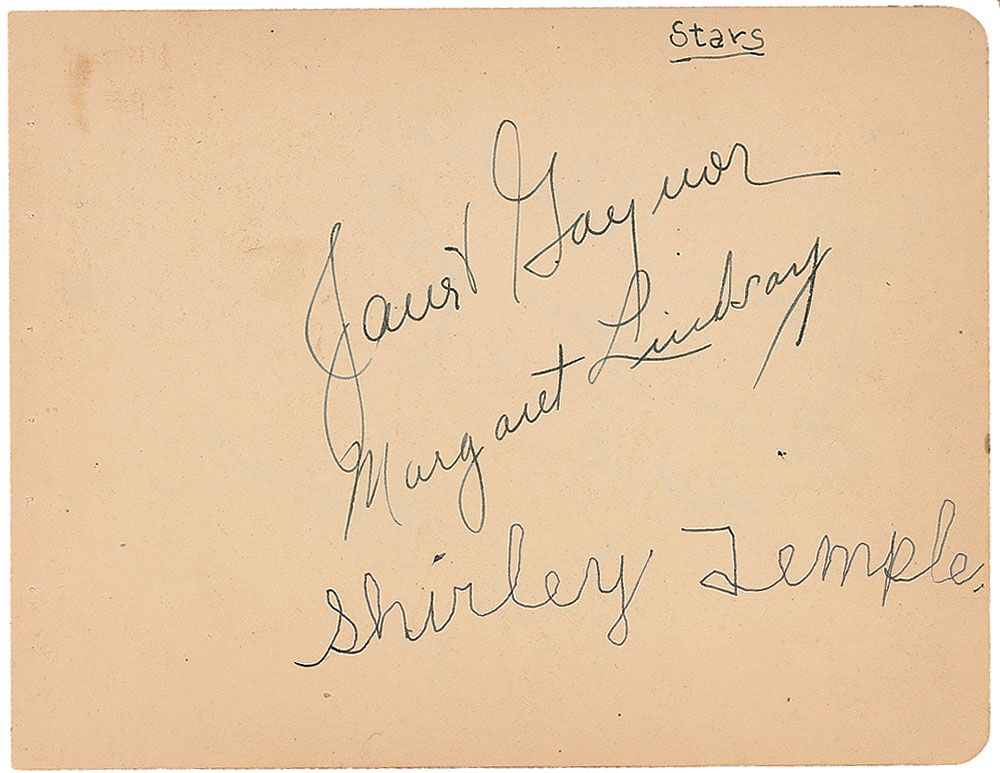 Stars
Janet Gaynor
Margaret Lindsay
Shirley Temple